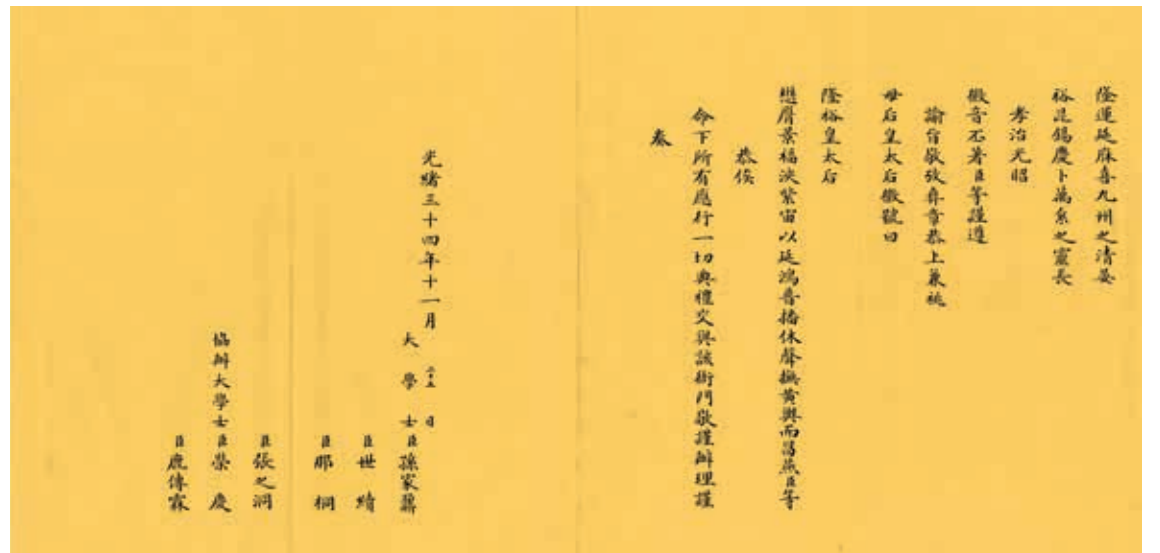 隆運延庥喜九州之清晏
裕昆錫慶卜萬系之靈長
孝治光昭
徽音丕著臣等謹遵
諭旨敬攷彝章恭上兼祧
母后皇太后徽號曰
隆裕皇太后
懋膺景福浹紫宙以延鴻普播休聲撫黃輿而篤祜臣等
恭俟
命下所有應行一切典禮交與該衙門敬謹辦理謹
奏
光緒三十四年十一月二十五日
大學士臣孫家鼐
臣世續
臣那桐
臣張之洞
協辦大學士臣榮慶
臣鹿傳霖